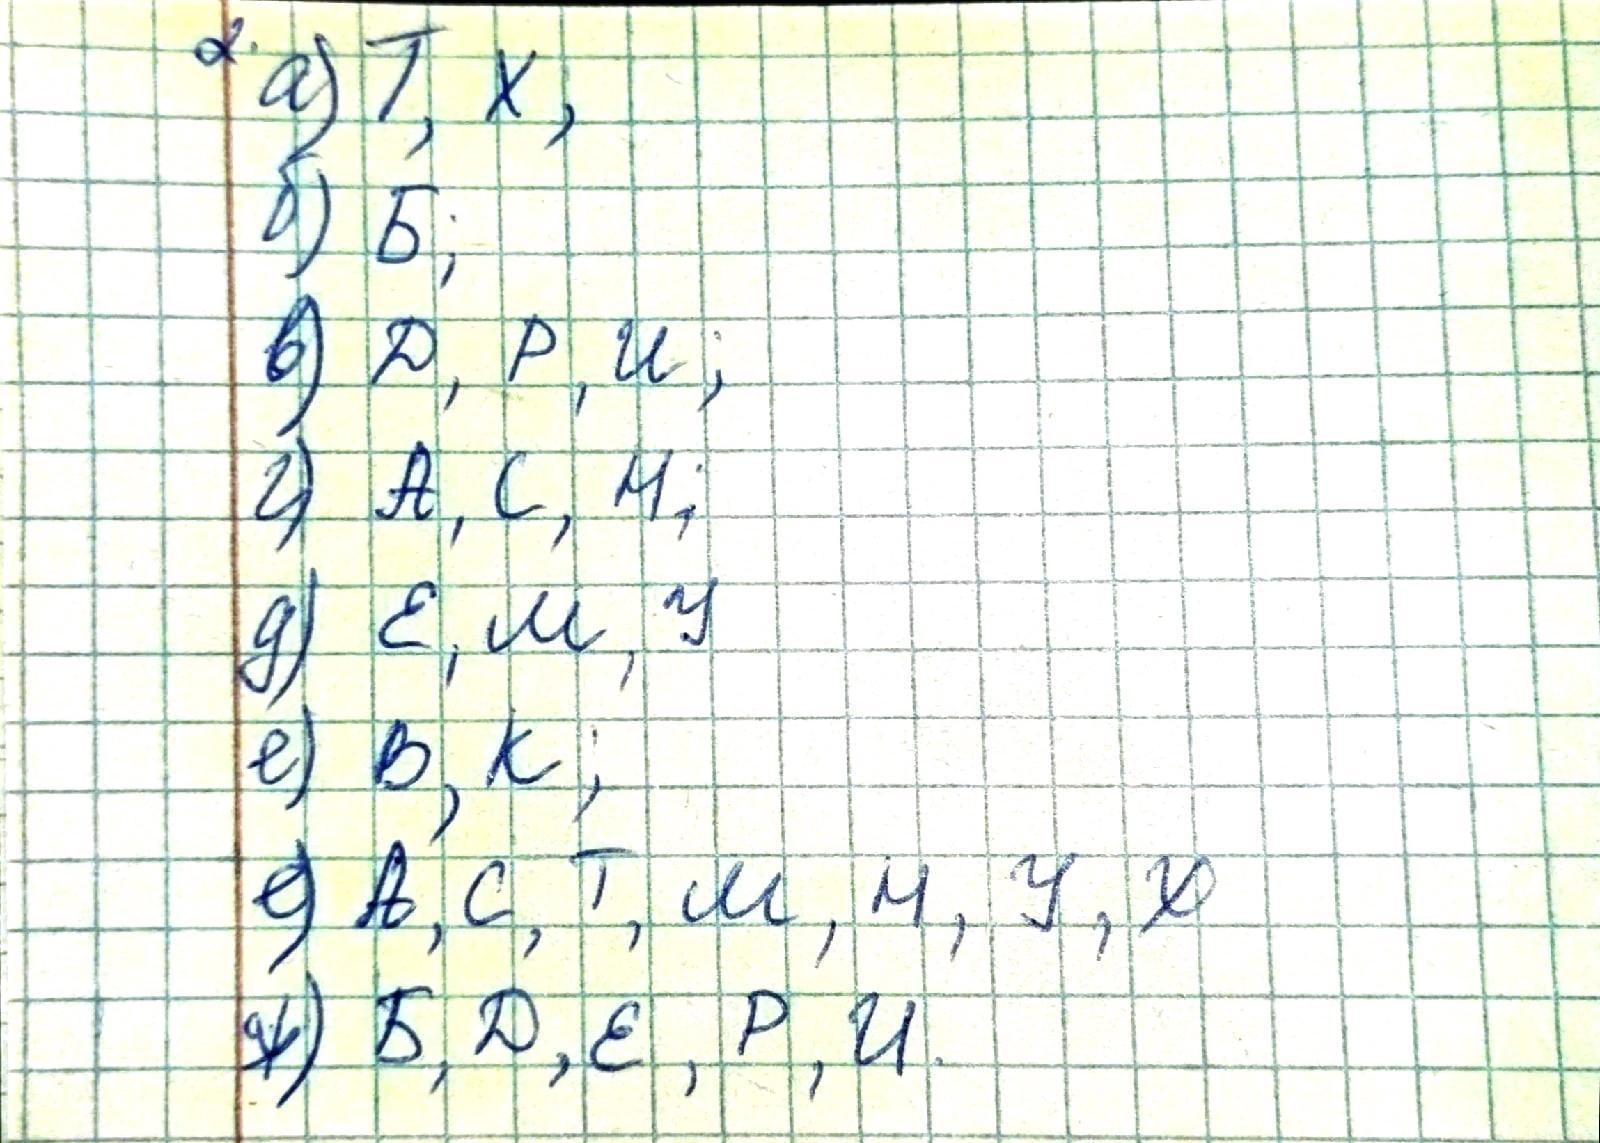 2. а) Т, Х,
б) Б;
в) Д, Р, И;
г) А, С, Н;
д) Е, М, У
е) В, К;
е) А, С, Т, М, Н, У, Х
ж) Б, Д, Е, Р, И.